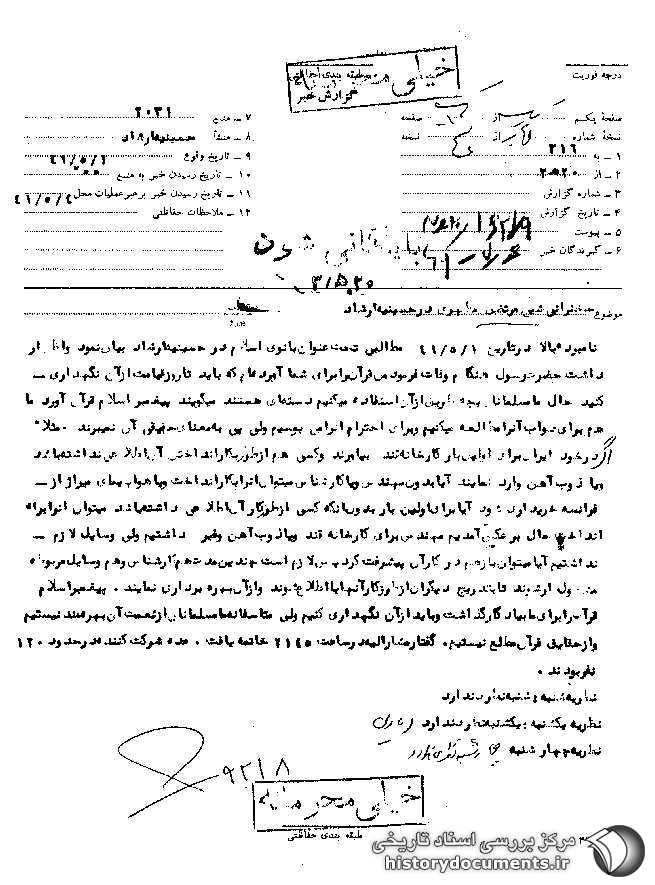 خیلی محرمانه
طبقه بندی حفاظتی
گزارش خبر
درجه فوریت
صفحه یکم از صفحه
نسخه شماره از نسخه
۱ – به ۳۱۶
۲ – از ۲۰ ه‍ ۲۰
۳ – شماره گزارش
۴ – تاریخ گزارش
۵ – پیوست
۶ – گیرندگان خبر
۷ – منبع ۲۰۳۱
۸ – منشأ حسینیه ارشاد
۹ – تاریخ وقوع ۴۶/۵/۱
۱۰ – تاریخ رسیدن خبر به منبع
۱۱ – تاریخ رسیدن خبر برهبر عملیات محل ۴۶/۵/۴
۱۲ – ملاحظات حفاظتی
بایگانی شود
موضوع سخنرانی شیخ مرتضی مطهری در حسینیه ارشاد
نامبرده بالا در تاریخ ۴۶/۵/۱ مطالبی تحت عنوان بانوی اسلام در حسینیه ارشاد بیان نمود و اظهار
داشت حضرت رسول هنگام وفات فرمود من قرآن را برای شما آورده‌ام که باید تا روز قیامت از آن نگهداری
کنید حال ما مسلمانان بچه طریق از آن استفاده میکنیم دسته‌ای هستند میگویند پیغمبر اسلام قرآن آورد ما
هم برای ثواب آنرا مطالعه میکنیم و برای احترام آنرا می بوسیم ولی پی به معنای حقیقی آن نمیبرند مثلا
اگر در خود ایران برای اولین بار کارخانه قند بیاورند و کسی هم از طرز بکار انداختن آن اطلاعی نداشته باشد
و یا ذوب آهن وارد نمایند آیا بدون مهندس و یا کارشناس میتوان آنرا بکار انداخت و یا هواپیمای میراژ از
فرانسه خریداری شود آیا برای اولین بار بدون آنکه کسی از طرز کار آن اطلاعی داشته باشد میتوان آنرا براه
انداخت حال برعکس آمدیم مهندس برای کارخانه قند و یا ذوب آهن و غیره داشتیم ولی وسایل لازم
نداشتیم آیا میتوان باز هم در کار آن پیشرفت کرد پس لازم است چندین مدت هم کارشناس و هم وسایل مربوطه
مشغول کار شوند تا بتدریج دیگران از طرز کار آنها با اطلاع شوند و از آن بهره برداری نمایند . پیغمبر اسلام
قرآن را برای ما بیادگار گذاشت و باید از آن نگهداری کنیم ولی متاسفانه ما مسلمانان از نعمت آن بهره مند نیستیم
و از حقایق قرآن مطلع نیستیم. گفتار مشارالیه در ساعت ۲۱۴۵ خاتمه یافت . عده شرکت کننده در حدود ۱۲۰
نفر بودند .
نظریه شنبه : شنبه نظری ندارد
نظریه یکشنبه : یکشنبه نظری ندارد
نظریه چهارشنبه
۹۲۱۸
خیلی محرمانه
طبقه بندی حفاظتی
مرکز بررسی اسناد تاریخی
historydocuments.ir